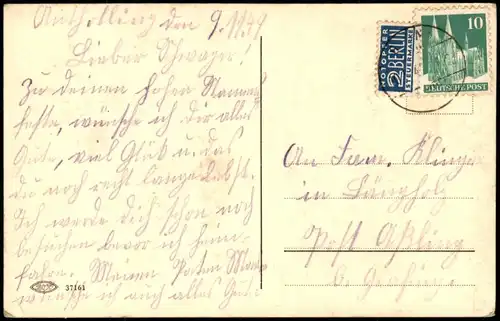 den 9.11.49
Lieber Schwager!
Zu deinen hohen Namens-
feste, wünsche ich dir alles
Gute, viel Glück u. das
du noch recht lange lebst.
Ich werde dich schon noch
besuchen bevor ich heim-
fahre. Meinen Paten
wünsche ich auch alles Gute.
37161
NOTOPFER
2 BERLIN
STEUERMARKE
10
DEUTSCHE POST
An Fam. Klinger
in
Post Aßling
b. Grafing